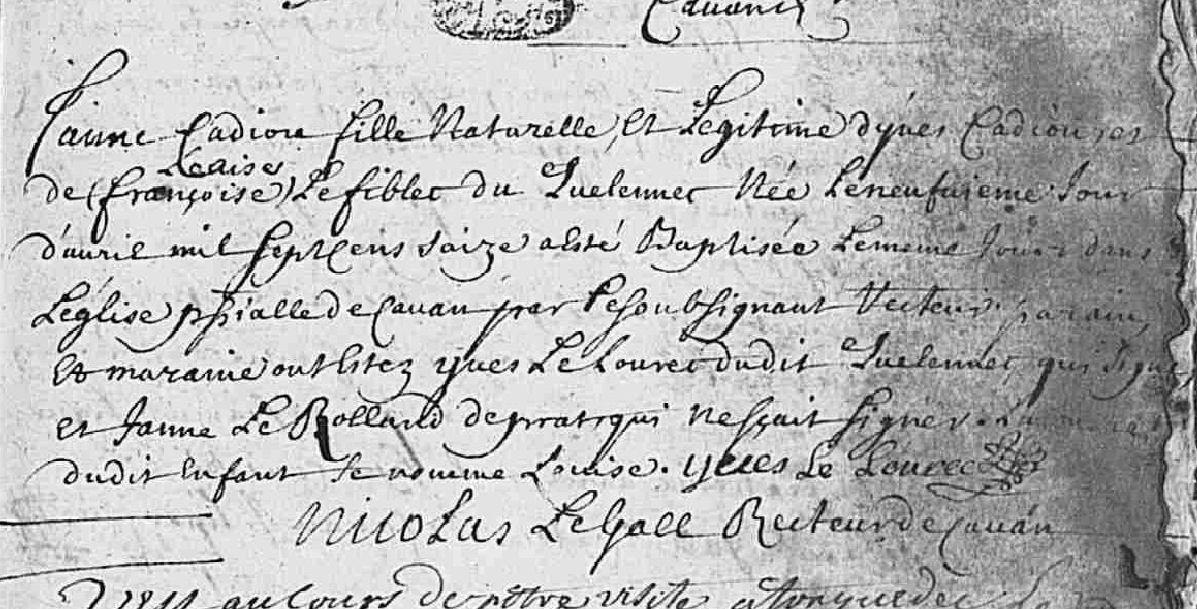 Cavan
Janne Cadiou fille Naturelle, et Legitime dÿves Cadiou, et
Louise
de (françoise) Le fiblec du Quelennec Née Leneufuieme Jour
d'auril mil septcens saize a esté Baptisée Lememe Jour dans
L'église ppialle de Cauan par Lesoubsignant Recteur. parain,
Et maraine ont Estez yues Le Lourec dudit Quelennec, qui signe,
et Janne Le Rolland de prat qui nesçait signer.
dudit Enfant se nomme Louise. yues Le Lourec
Nicolas LeGall Recteur de Cauan
au Cours de nôtre visite a tonquedec